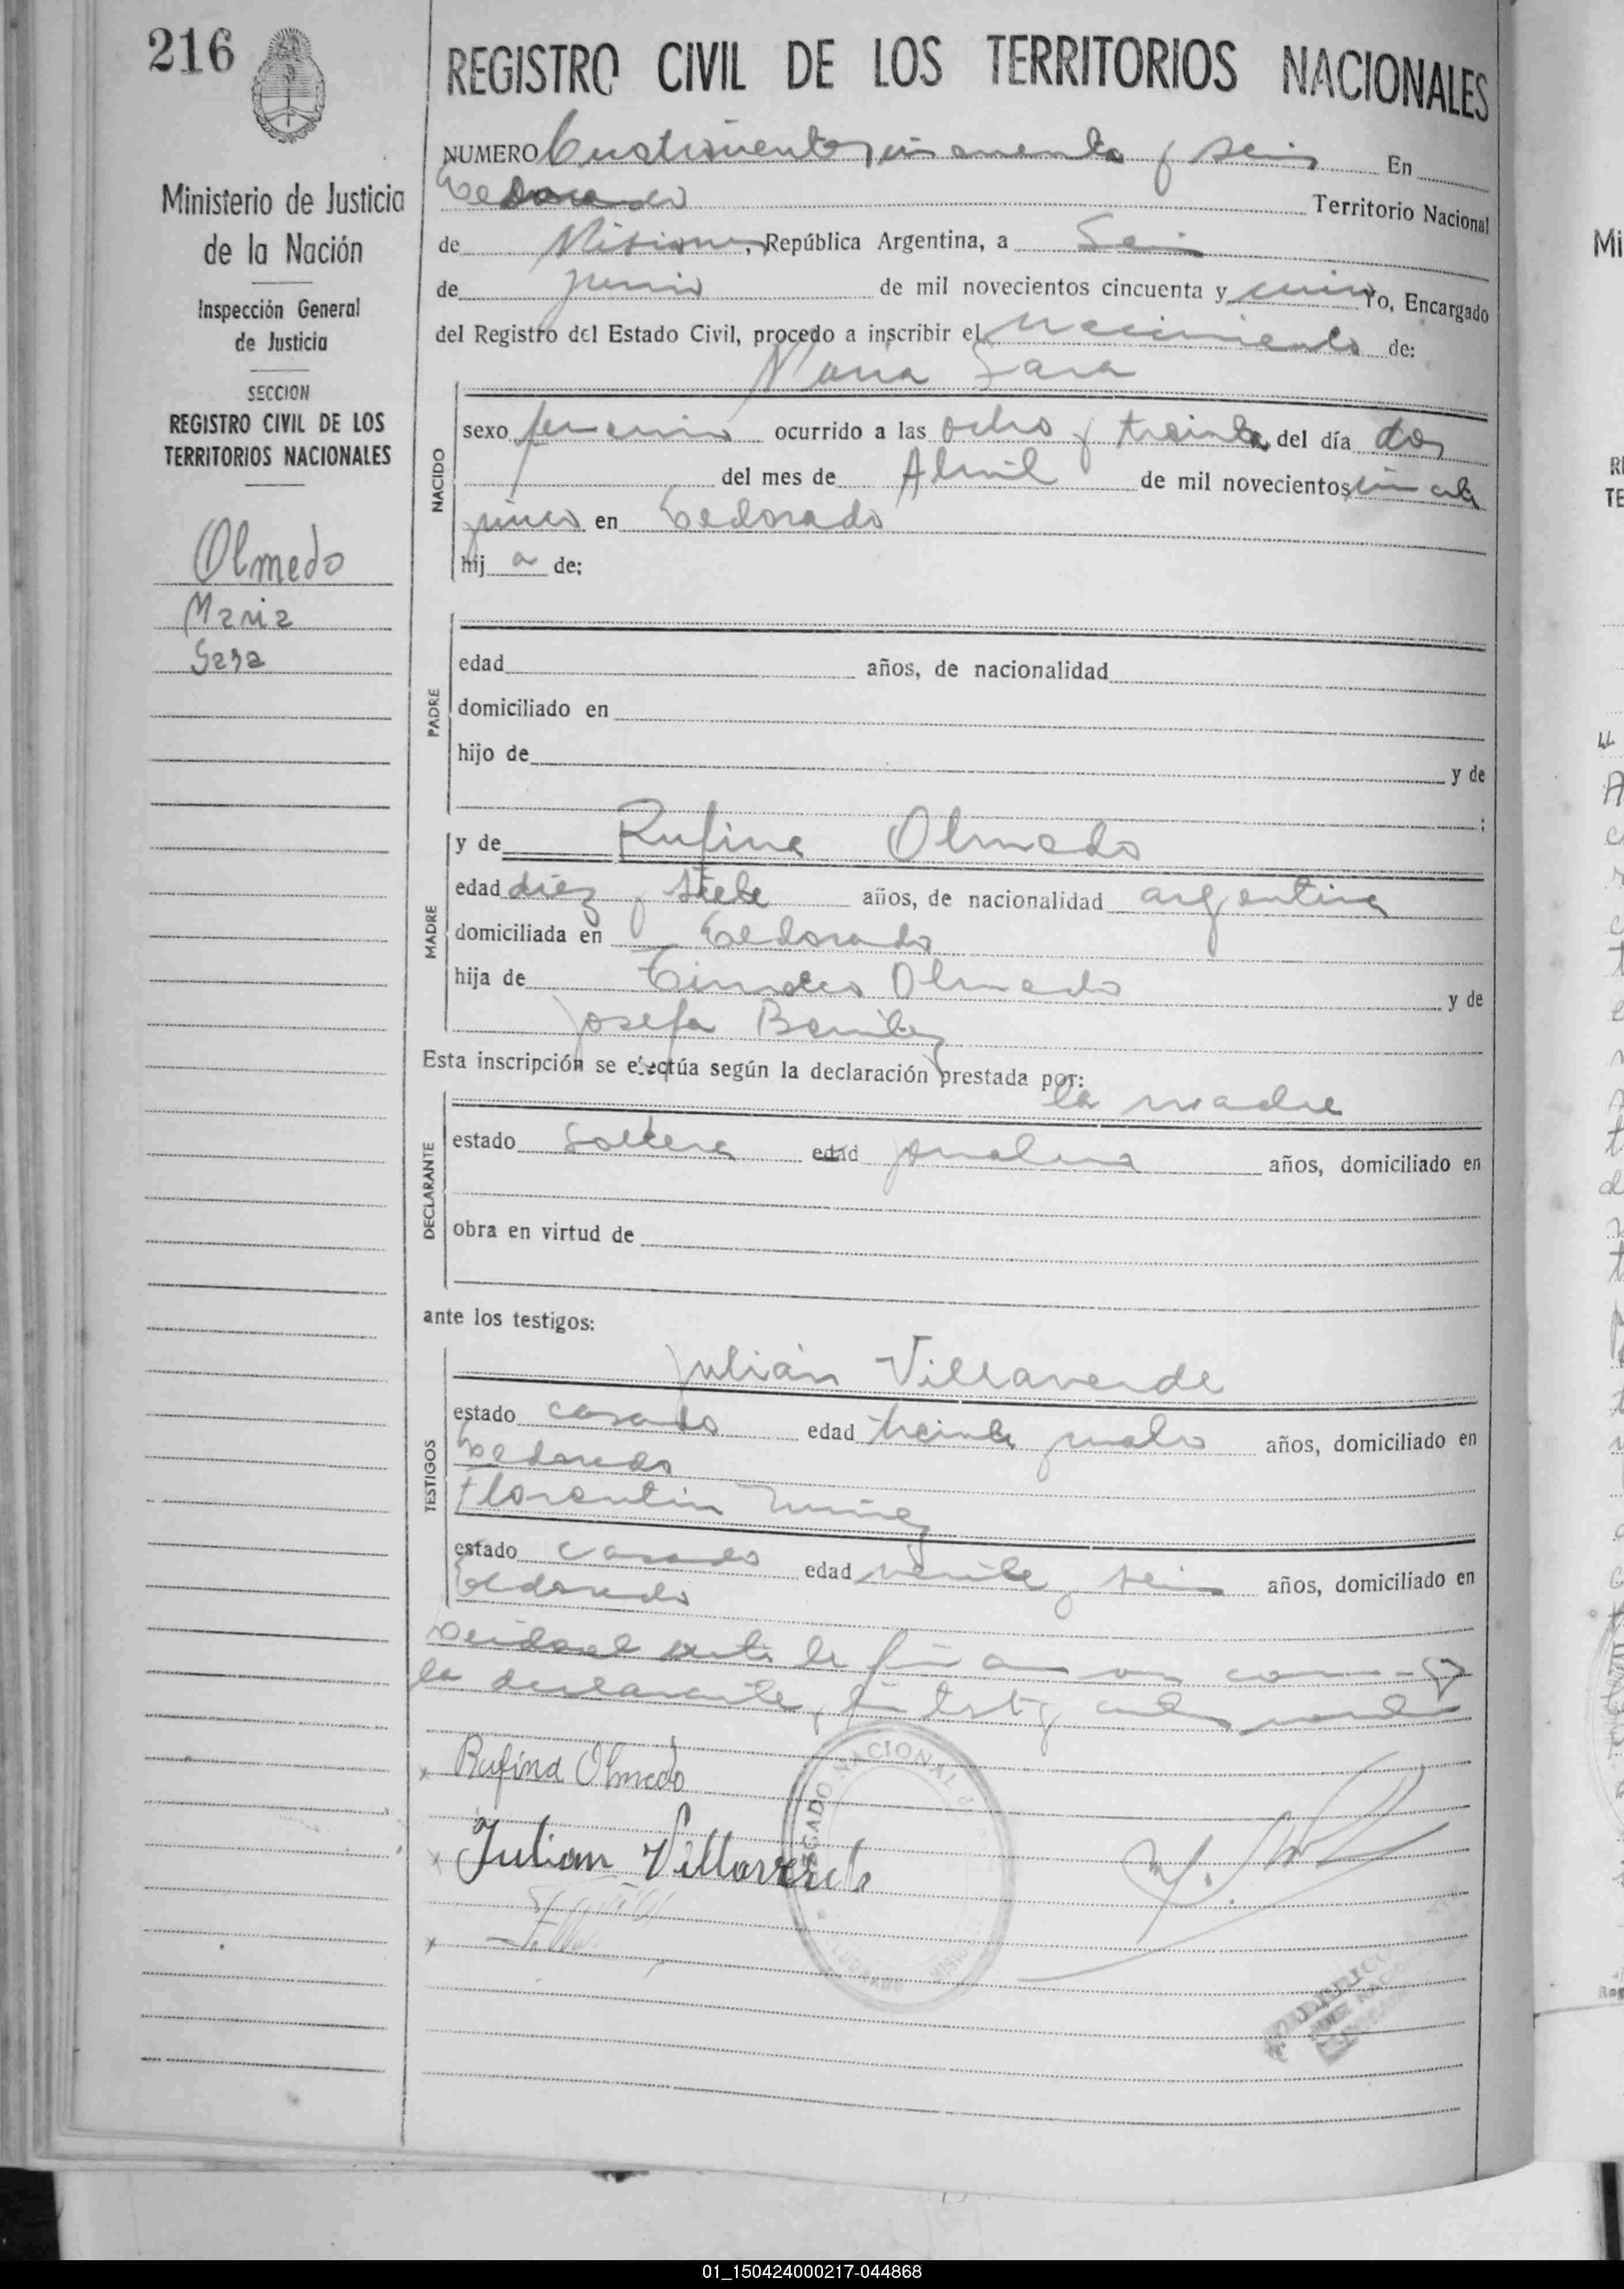 216
REGISTRO CIVIL DE LOS TERRITORIOS NACIONALES
Ministerio de Justicia
de la Nación
Inspección General
de Justicia
SECCION
REGISTRO CIVIL DE LOS
TERRITORIOS NACIONALES
Olmedo
Maria
Sara
NUMERO Cuatrocientos cincuenta y seis En
Eldorado Territorio Nacional
de Misiones, República Argentina, a Seis
de junio de mil novecientos cincuenta y cinco Yo, Encargado
del Registro del Estado Civil, procedo a inscribir el nacimiento de:
Maria Sara
NACIDO
sexo femenino ocurrido a las ocho y treinta del día dos
del mes de Abril de mil novecientos
cinco en Eldorado
hij a de:
PADRE
edad años, de nacionalidad
domiciliado en
hijo de y de
;
MADRE
y de Rufina Olmedo
edad diez y siete años, de nacionalidad argentina
domiciliada en Eldorado
hija de Timoteo Olmedo y de
Josefa Benitez
Esta inscripción se efectúa según la declaración prestada por:
la madre
DECLARANTE
estado Soltera edad años, domiciliado en
obra en virtud de
ante los testigos:
TESTIGOS
Julián Villaverde
estado casado edad treinta años, domiciliado en
Eldorado
Florentin Nuñez
estado casado edad veinte y seis años, domiciliado en
Eldorado
Leida el acta la firmaron conmigo
la declarante y los testigos
Rufina Olmedo
Julian Villaverde
NACIONAL
01_150424000217-044868